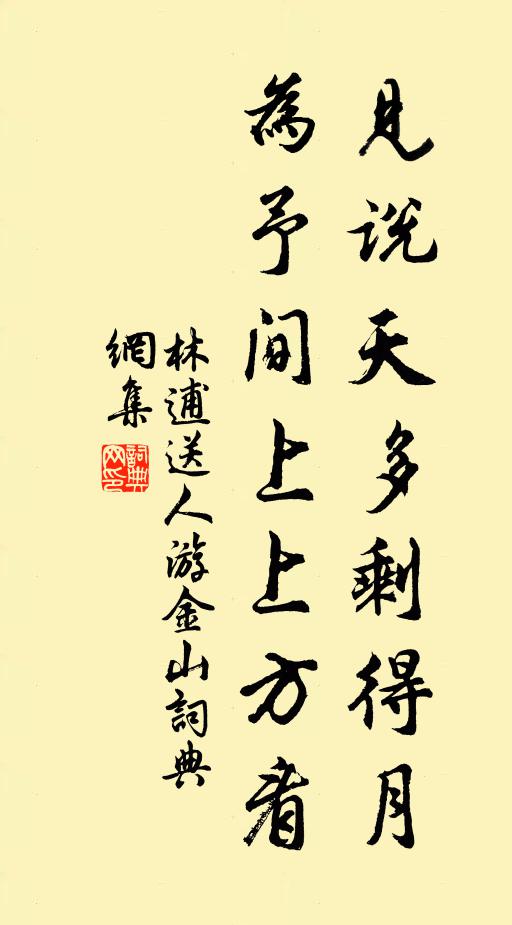 見説天多剩得月
為予間上上方看
林逋送人游金山詞典
網集
詞典
网印